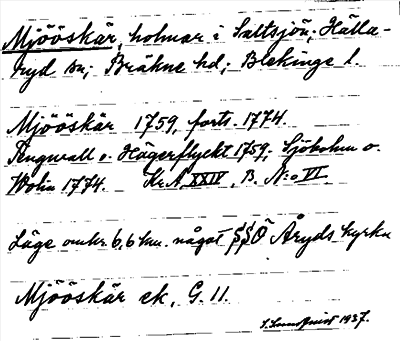 Mjööskär, holmar i Saltsjön; Hälla-
ryd sn; Bräkne hd; Blekinge l.
Mjööskär 1759, forts. 1774.
Tengwall o. Hägerflyckt 1759; Sjöbohm o.
Wolin 1774. Kr. A. XXIV, B. N:o VI.
Läge omkr. 6,6 km. något SSÖ Åryds kyrka
Mjööskär ek, G. 11.
1937.